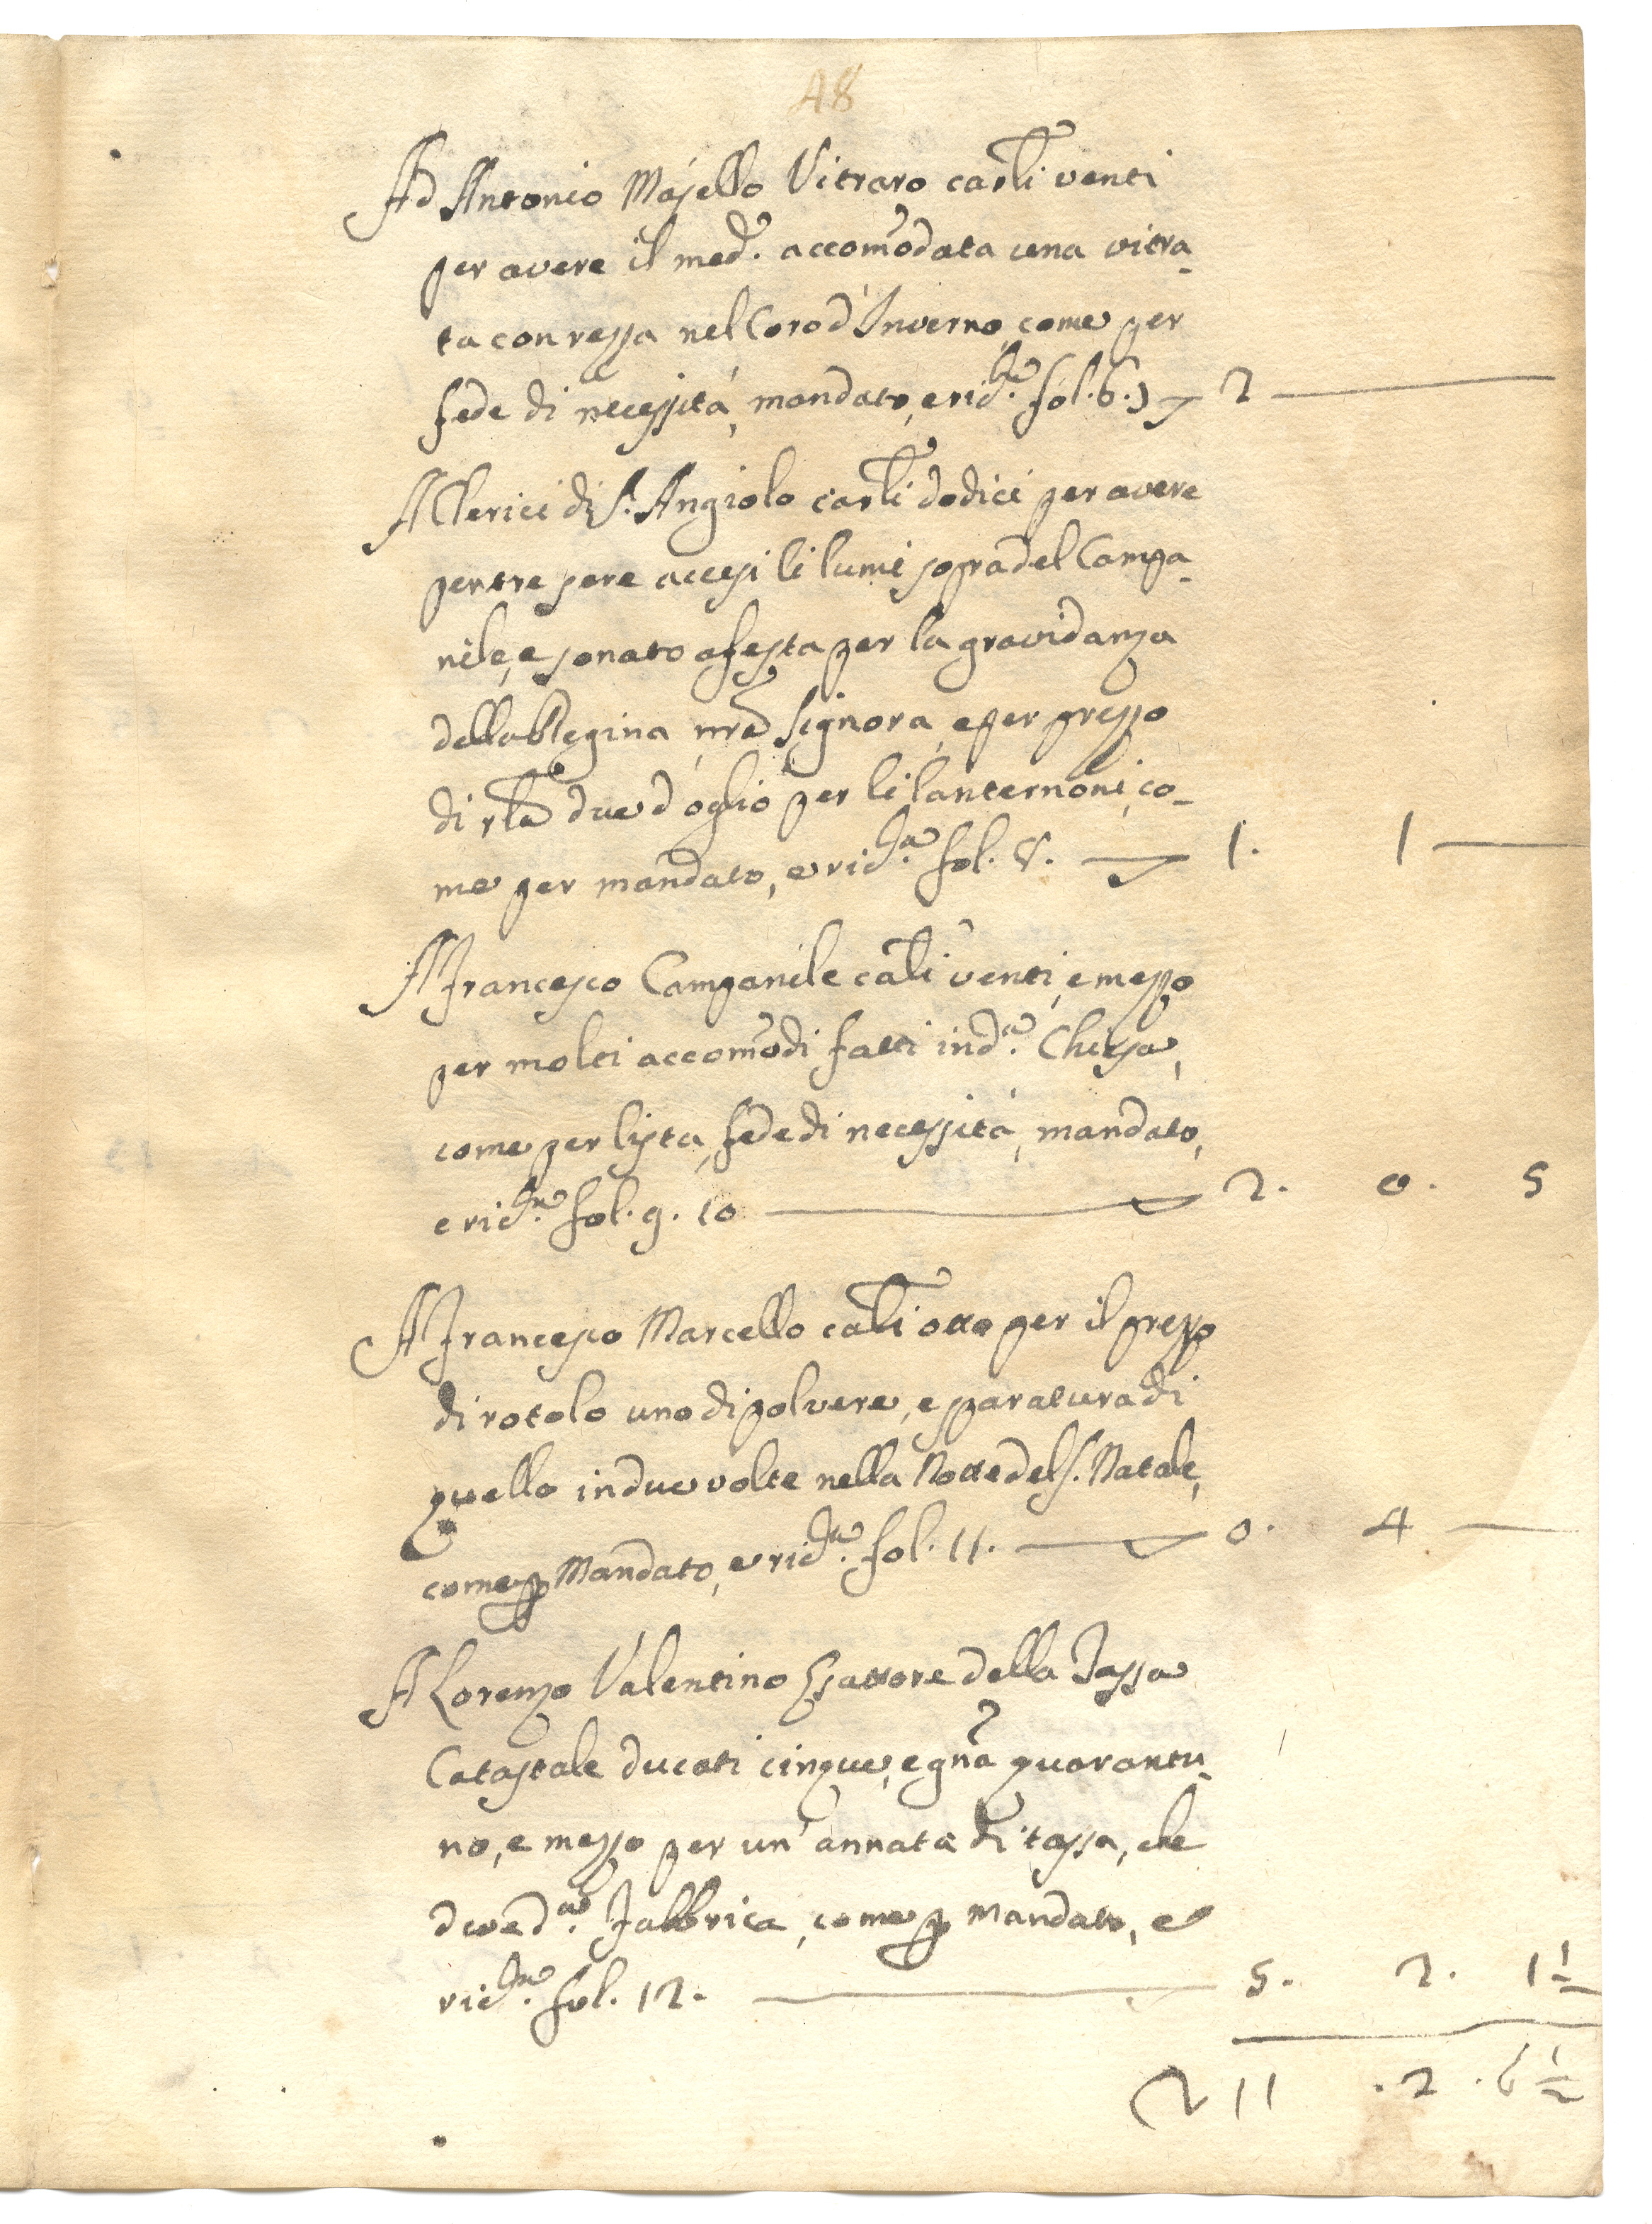 48
Ad Antonio Majello Vitraro carli venti
per avere il med. accomodata una vitra-
ta con rezza nel Coro d'Inverno, come per
fede di necessità, mandato, e ric.ta fol. 6. 7 2
A Clerici di S. Angiolo carli dodici per avere
per tre sere accesi li lumi sopra del Campa-
nile, e sonato a festa per la gravidanza
della Regina nra Signora, e per prezzo
di rla due d'oglio per li lanternoni, co-
me per mandato, e ric.ta fol. 8. 1. 1
A Francesco Campanile carli venti, e mezzo
per molti accomodi fatti in d.a Chiesa,
come per lista, fede di necessità, mandato,
e ric.ta fol. 9. 10 2. 0. 5
A Francesco Marcello carli otto per il prezzo
di rotolo uno di polvere, e sparatura di
quello in due volte nella Notte del S. Natale,
come p Mandato, e ric.ta fol. 11. 0. 4
A Lorenzo Valentino Esattore della Tassa
Catastale ducati cinque, e gna quarantu-
no, e mezzo per un'annata di tassa, che
deve d.a Fabbrica, come p mandato, e
ric.ta fol. 12. 5. 2. 1 1/2
11 . 2 . 6 1/2